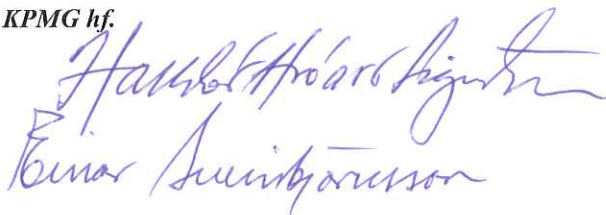 KPMG hf.
Halldór Hróarr Sigurðsson
Einar Sveinbjörnsson